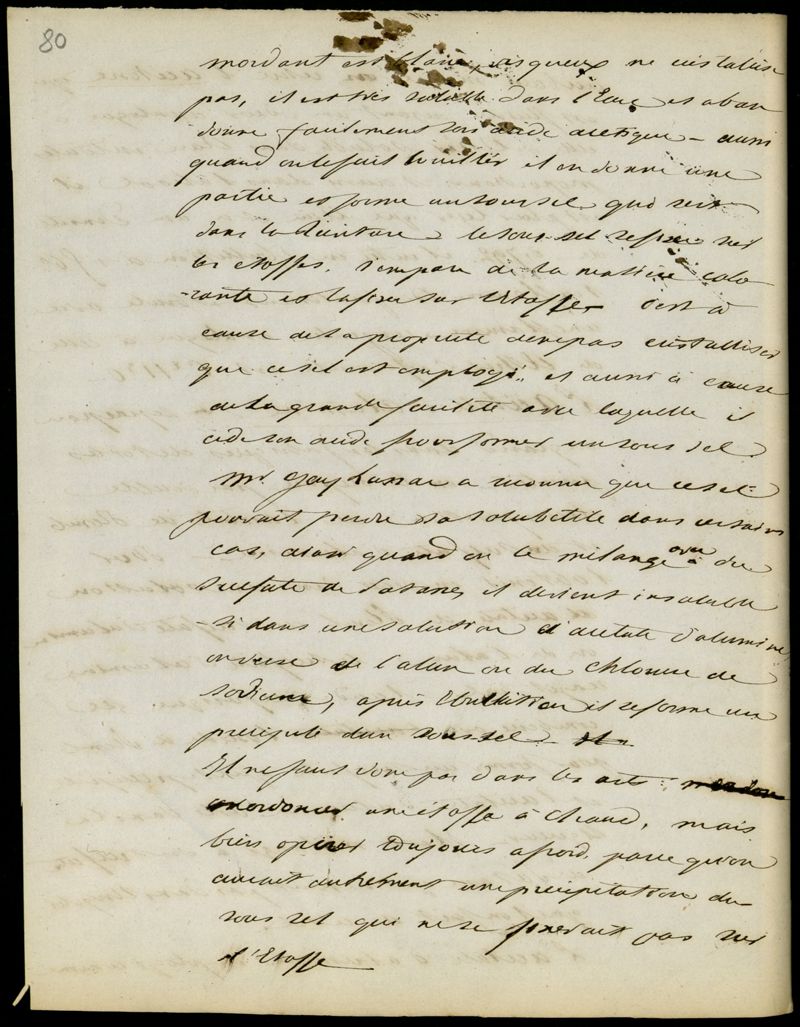 80
mordant est blanc, visqueux ne cristalise
pas, il est très soluble dans l'Eau et aban
donne facilement son acide acetique – aussi
quand on le fait bouillir il en donne une
partie et forme un sous sel qui sert
dans la teinture. le sous sel se fixe sur
les etoffes, s'empare de la matiere colo
-rante et la fixe sur l'etoffe – c'est à
cause de la propriete de ne pas cristalliser
que ce sel est employé, et aussi à cause
de la grande facilité avec laquelle il
cède son acide pour former un sous sel
Mr Gay Lussac a reconnu que ce sel
pouvait perdre sa solubilité dans certains
cas, ainsi quand on le mélange avec du
sulfate de Potasse, il devient insoluble
– si dans une solution d'acetate d'alumine
on verse de l'alun ou du chlorure de
sodium, après Ebullition il se forme un
precipité d'un sous sel –
Il ne faut donc pas dans les arts
mordancer une etoffe à chaud, mais
bien operer toujours a froid, parce qu'on
aurait autrement une precipitation du
sous sel qui ne se fixerait pas sur
l'Etoffe